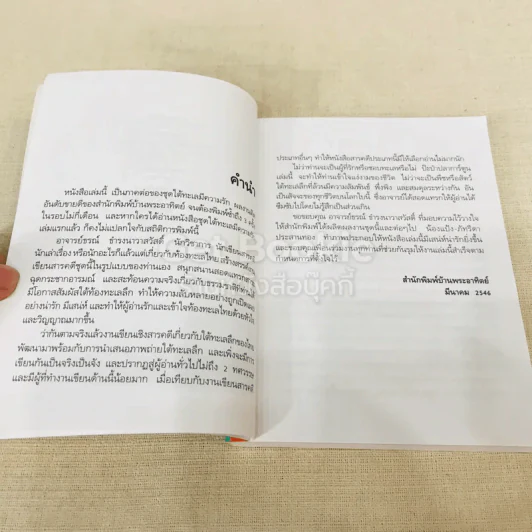 คำนำ
หนังสือเล่มนี้ เป็นภาคต่อของชุดใต้ทะเลมีความรัก ผลงานติด
อันดับขายดีของสำนักพิมพ์บ้านพระอาทิตย์ จนต้องพิมพ์ซ้ำถึง 3 ครั้ง
ในรอบไม่กี่เดือน และหากใครได้อ่านหนังสือชุดใต้ทะเลมีความ
เล่มแรกแล้ว ก็คงไม่แปลกใจกับสถิติการพิมพ์นี้
อาจารย์ธรณ์ ธำรงนาวาสวัสดิ์ นักวิชาการ นักเขียน
นักเล่าเรื่อง หรือนักอะไรก็แล้วแต่เกี่ยวกับท้องทะเลไทย สร้างสรรค์
เขียนสารคดีชุดนี้ในรูปแบบของท่านเอง สนุกสนานสอดแทรก
ฉุดกระชากอารมณ์ และสะท้อนความจริงเกี่ยวกับธรรมชาติที่ท่าน
มีโอกาสสัมผัสใต้ท้องทะเลลึก ทำให้ความลับหลายอย่างถูกเปิดเผย
อย่างน่ารัก มีเสน่ห์ และทำให้ผู้อ่านรักและเข้าใจท้องทะเลไทยด้วยหัวใจ
และวิญญาณมากขึ้น
ว่ากันตามจริงแล้วงานเขียนเชิงสารคดีเกี่ยวกับใต้ทะเลลึกของไทย
พัฒนามาพร้อมกับการนำเสนอภาพถ่ายใต้ทะเลลึก และเพิ่งจะมีการ
เขียนกันเป็นจริงเป็นจัง และปรากฏสู่ผู้อ่านทั่วไปไม่ถึง 2 ทศวรรษ
และมีผู้ที่ทำงานเขียนด้านนี้น้อยมาก เมื่อเทียบกับงานเขียนสารคดี
ประเภทอื่นๆ ทำให้หนังสือสารคดีประเภทนี้มีให้เลือกอ่านไม่มากนัก
ไม่ว่าท่านจะเป็นผู้ที่รักหรือชอบทะเลหรือไม่ ปิ๊ดปิ๋วปลาการ์ตูน
เล่มนี้ จะทำให้ท่านเข้าใจแง่งามของชีวิต ไม่ว่าจะเป็นพืชหรือสัตว์
ใต้ทะเลลึกที่ล้วนมีความสัมพันธ์ พึ่งพิง และสมดุลระหว่างกัน อัน
เป็นสัจจะของทุกชีวิตบนโลกใบนี้ ซึ่งอาจารย์ได้สอดแทรกให้ผู้อ่านได้
ซึมซับไปโดยไม่รู้สึกเป็นส่วนเกิน
ขอขอบคุณ อาจารย์ธรณ์ ธำรงนาวาสวัสดิ์ ที่มอบความไว้วางใจ
ให้สำนักพิมพ์ได้ผลิตผลงานชุดนี้และต่อๆ ไป น้องแป้ง-ภัทริดา
ประสานทอง ทำภาพประกอบให้หนังสือเล่มนี้มีเสน่ห์น่ารักยิ่งขึ้น
และขอบคุณทีมงานทุกท่านที่ช่วยกันรุมให้งานเล่มนี้สำเร็จตาม
กำหนดการที่ตั้งใจไว้
สำนักพิมพ์บ้านพระอาทิตย์
มีนาคม 2546